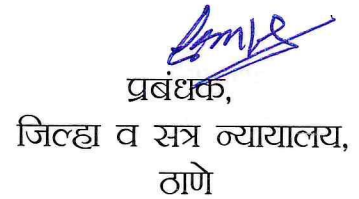 प्रबंधक,
जिल्हा व सत्र न्यायालय,
ठाणे